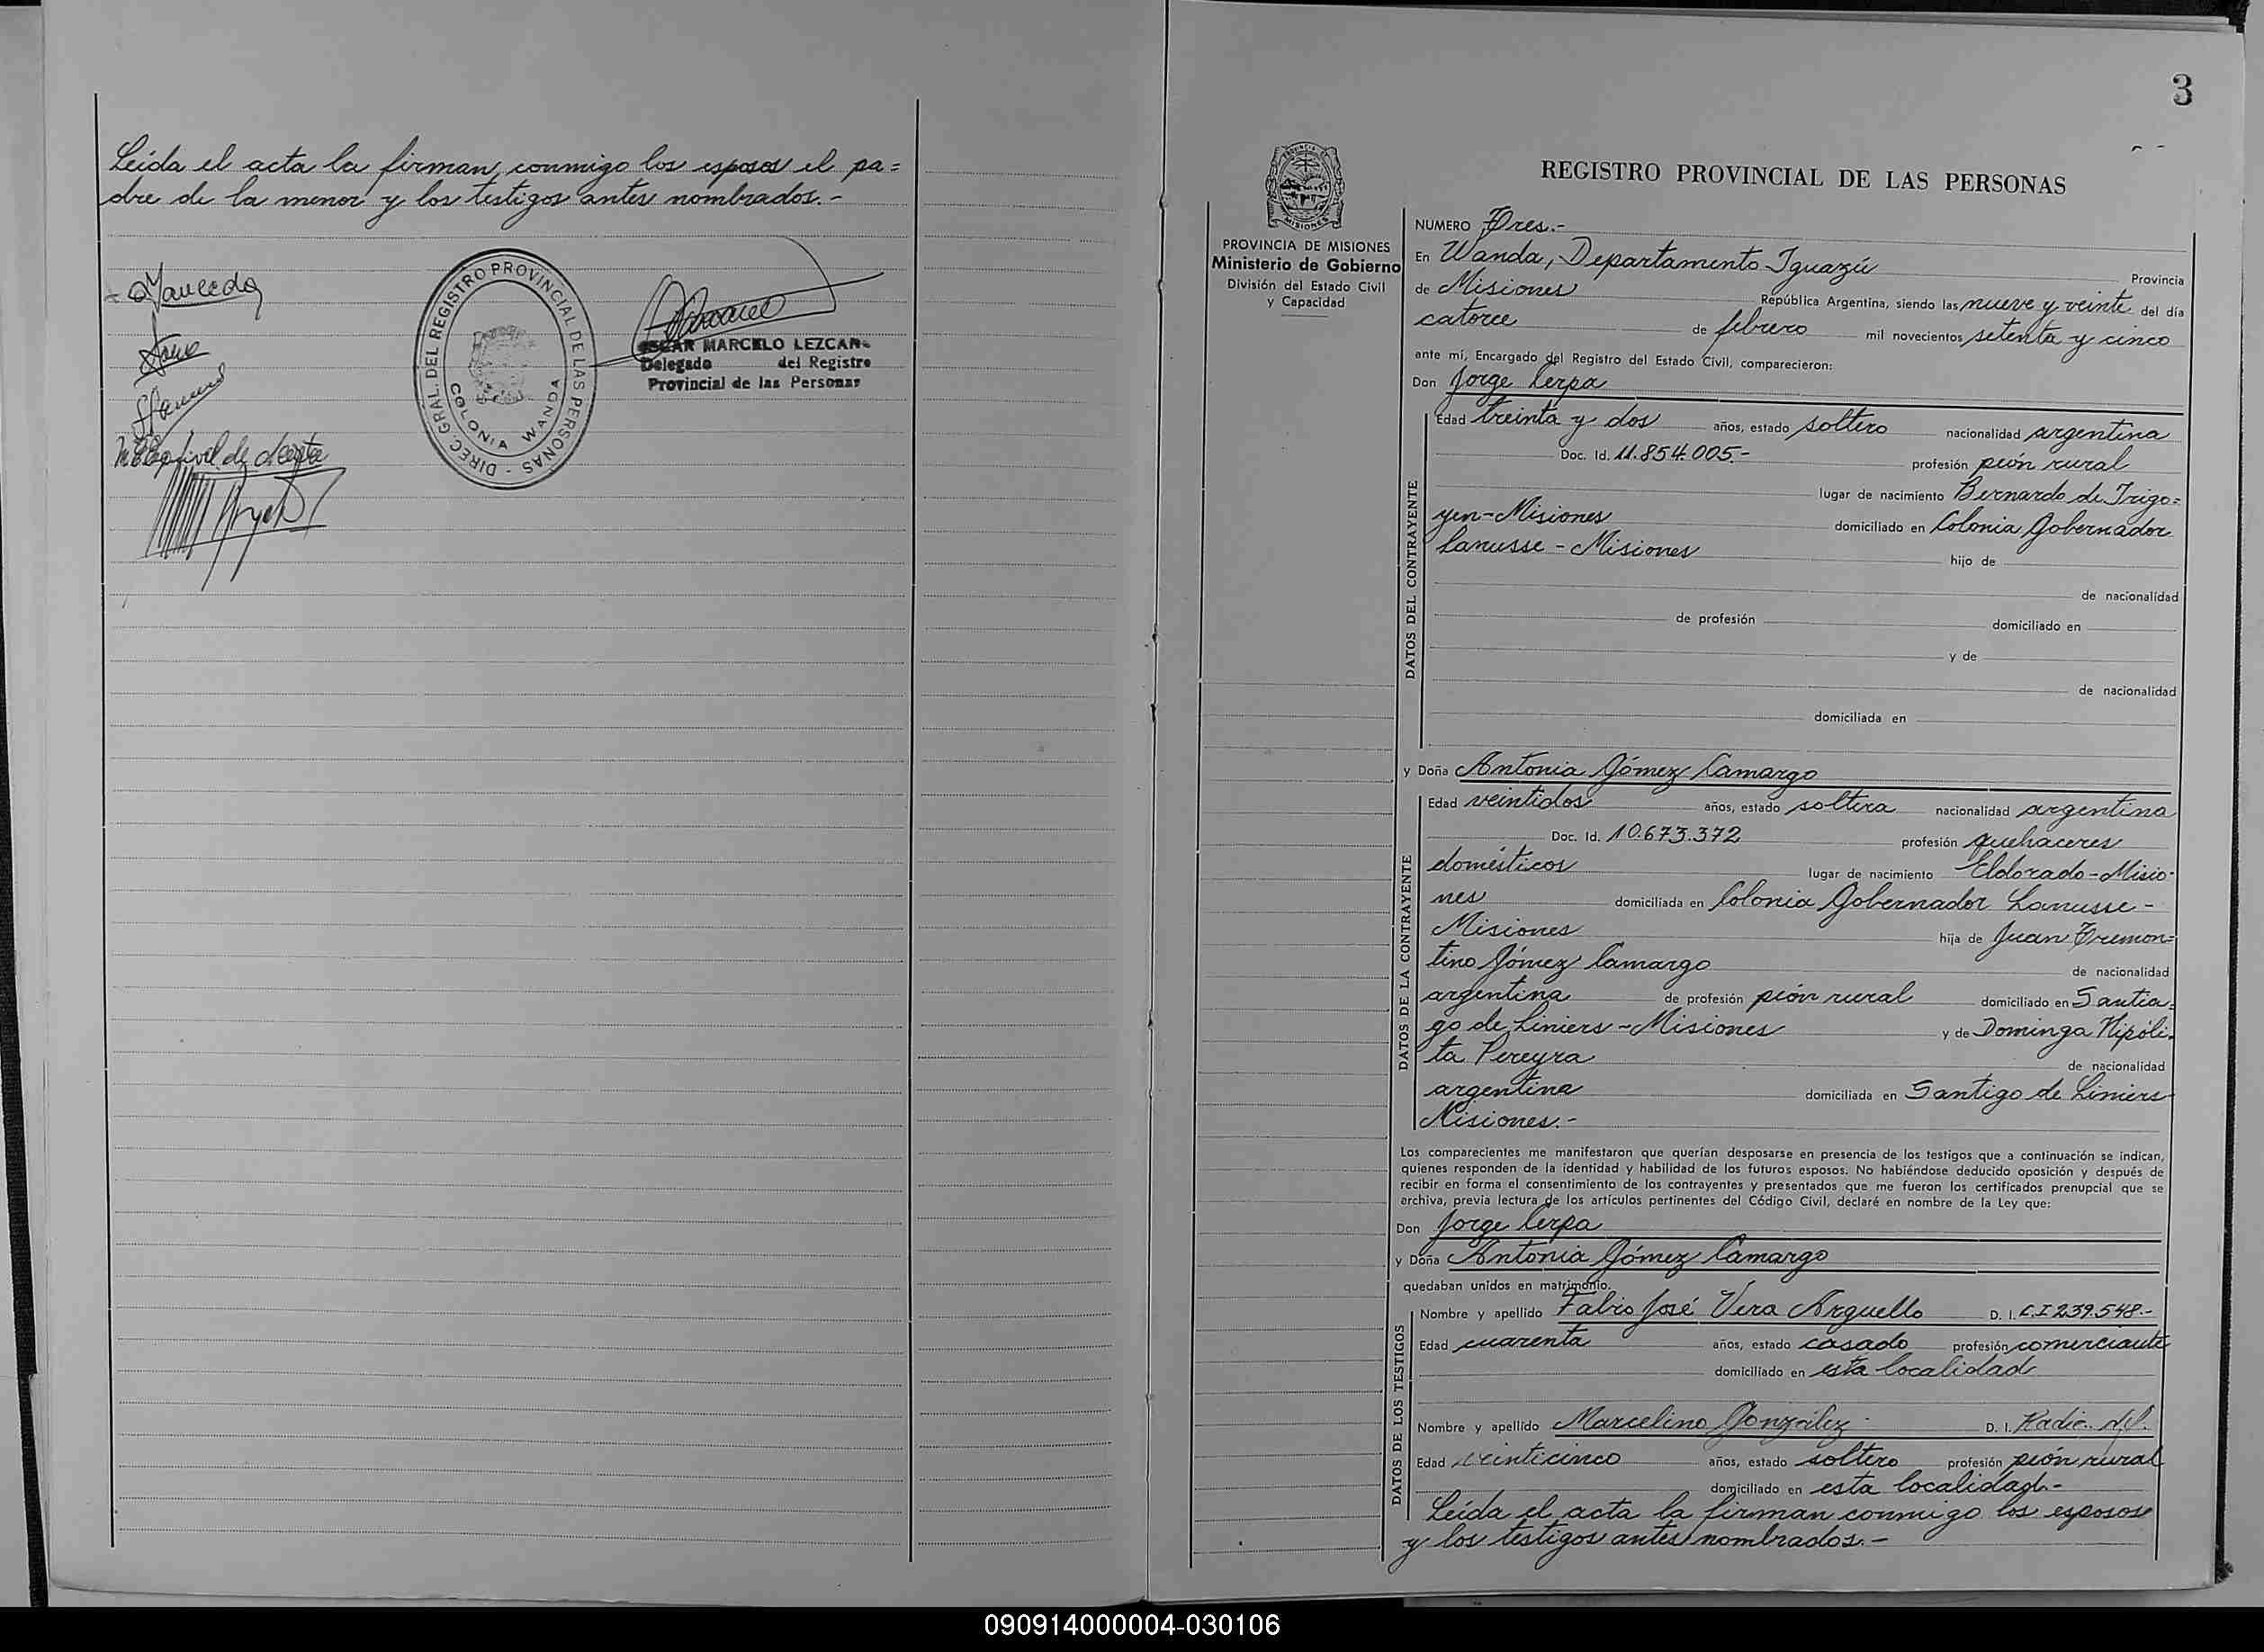 Leída el acta la firman conmigo los esposos el pa=
dre de la menor y los testigos antes nombrados.-
DIREC. GRAL. DEL REGISTRO PROVINCIAL DE LAS PERSONAS -
COLONIA WANDA
OSCAR MARCELO LEZCANO
Delegado del Registro
Provincial de las Personas
3
PROVINCIA DE MISIONES
Ministerio de Gobierno
División del Estado Civil
y Capacidad
REGISTRO PROVINCIAL DE LAS PERSONAS
NUMERO Tres.-
En Wanda, Departamento Iguazú Provincia
de Misiones República Argentina, siendo las nueve y veinte del día
catorce de febrero mil novecientos setenta y cinco
ante mí, Encargado del Registro del Estado Civil, comparecieron:
Don Jorge Cerpa
DATOS DEL CONTRAYENTE
Edad treinta y dos años, estado soltero nacionalidad argentina
Doc. Id. 11.854.005.- profesión peón rural
lugar de nacimiento Bernardo de Irigo=
yen-Misiones domiciliado en Colonia Gobernador
Lanusse - Misiones hijo de
de nacionalidad
de profesión domiciliado en
y de
de nacionalidad
domiciliada en
y Doña Antonia Gómez Camargo
DATOS DE LA CONTRAYENTE
Edad veintidos años, estado soltera nacionalidad argentina
Doc. Id. 10.673.372 profesión quehaceres
domésticos lugar de nacimiento Eldorado-Misio-
nes domiciliada en Colonia Gobernador Lanusse -
Misiones hija de Juan Tremon=
tino Gómez Camargo de nacionalidad
argentina de profesión peón rural domiciliado en Santia=
go de Liniers - Misiones y de Dominga Hipóli=
ta Pereyra de nacionalidad
argentina domiciliada en Santigo de Liniers
Misiones.-
Los comparecientes me manifestaron que querían desposarse en presencia de los testigos que a continuación se indican,
quienes responden de la identidad y habilidad de los futuros esposos. No habiéndose deducido oposición y después de
recibir en forma el consentimiento de los contrayentes y presentados que me fueron los certificados prenupcial que se
archiva, previa lectura de los artículos pertinentes del Código Civil, declaré en nombre de la Ley que:
Don Jorge Cerpa
y Doña Antonia Gómez Camargo
quedaban unidos en matrimonio.
DATOS DE LOS TESTIGOS
Nombre y apellido Fabio José Vera Arguello D. I. C.I 239.548.-
Edad cuarenta años, estado casado profesión comerciante
domiciliado en esta localidad
Nombre y apellido Marcelino González D. I. Radic.
Edad veinticinco años, estado soltero profesión peón rural
domiciliado en esta localidad.-
Leída el acta la firman conmigo los esposos
y los testigos antes nombrados.-
090914000004-030106